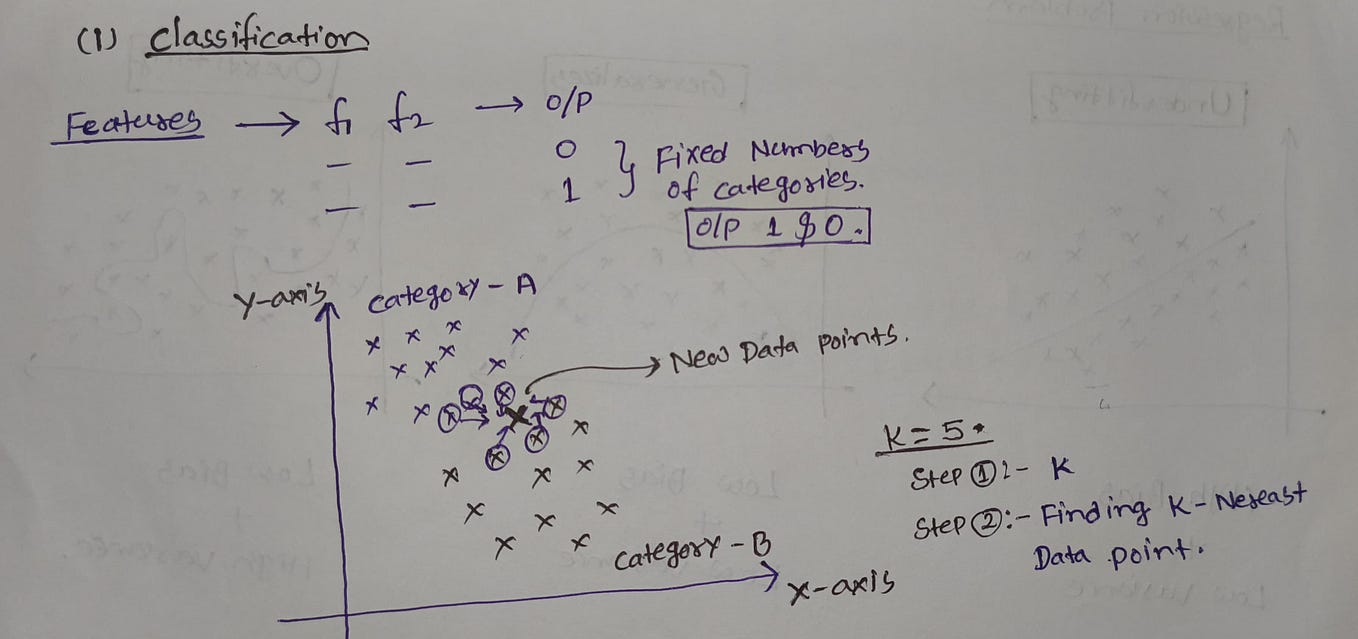 (1) Classification
Features → f1 f2 → O/P
— — 0
— — 1
} Fixed Numbers
of categories.
O/P 1 & 0.
Y-axis
Category - A
New Data points.
K = 5.
Step ① :- K
Step ② :- Finding K - Nereast
Data point.
Category - B
X-axis